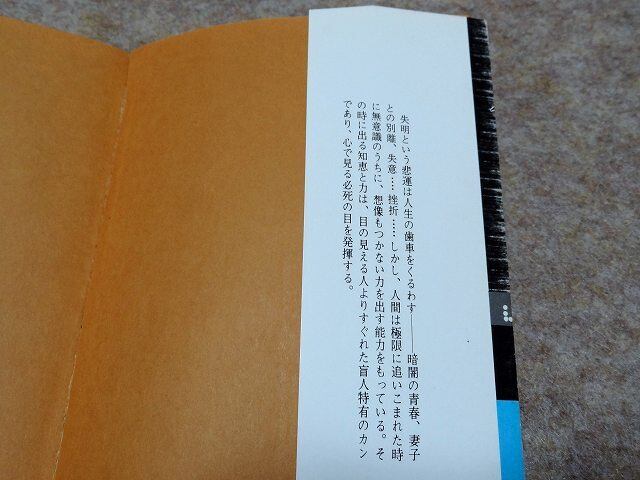 失明という悲運は人生の歯車をくるわす――暗闇の青春、妻子
との別離、失意……挫折……しかし、人間は極限に追いこまれた時
に無意識のうちに、想像もつかない力を出す能力をもっている。そ
の時に出る知恵と力は、目の見える人よりすぐれた盲人特有のカン
であり、心で見る必死の目を発揮する。